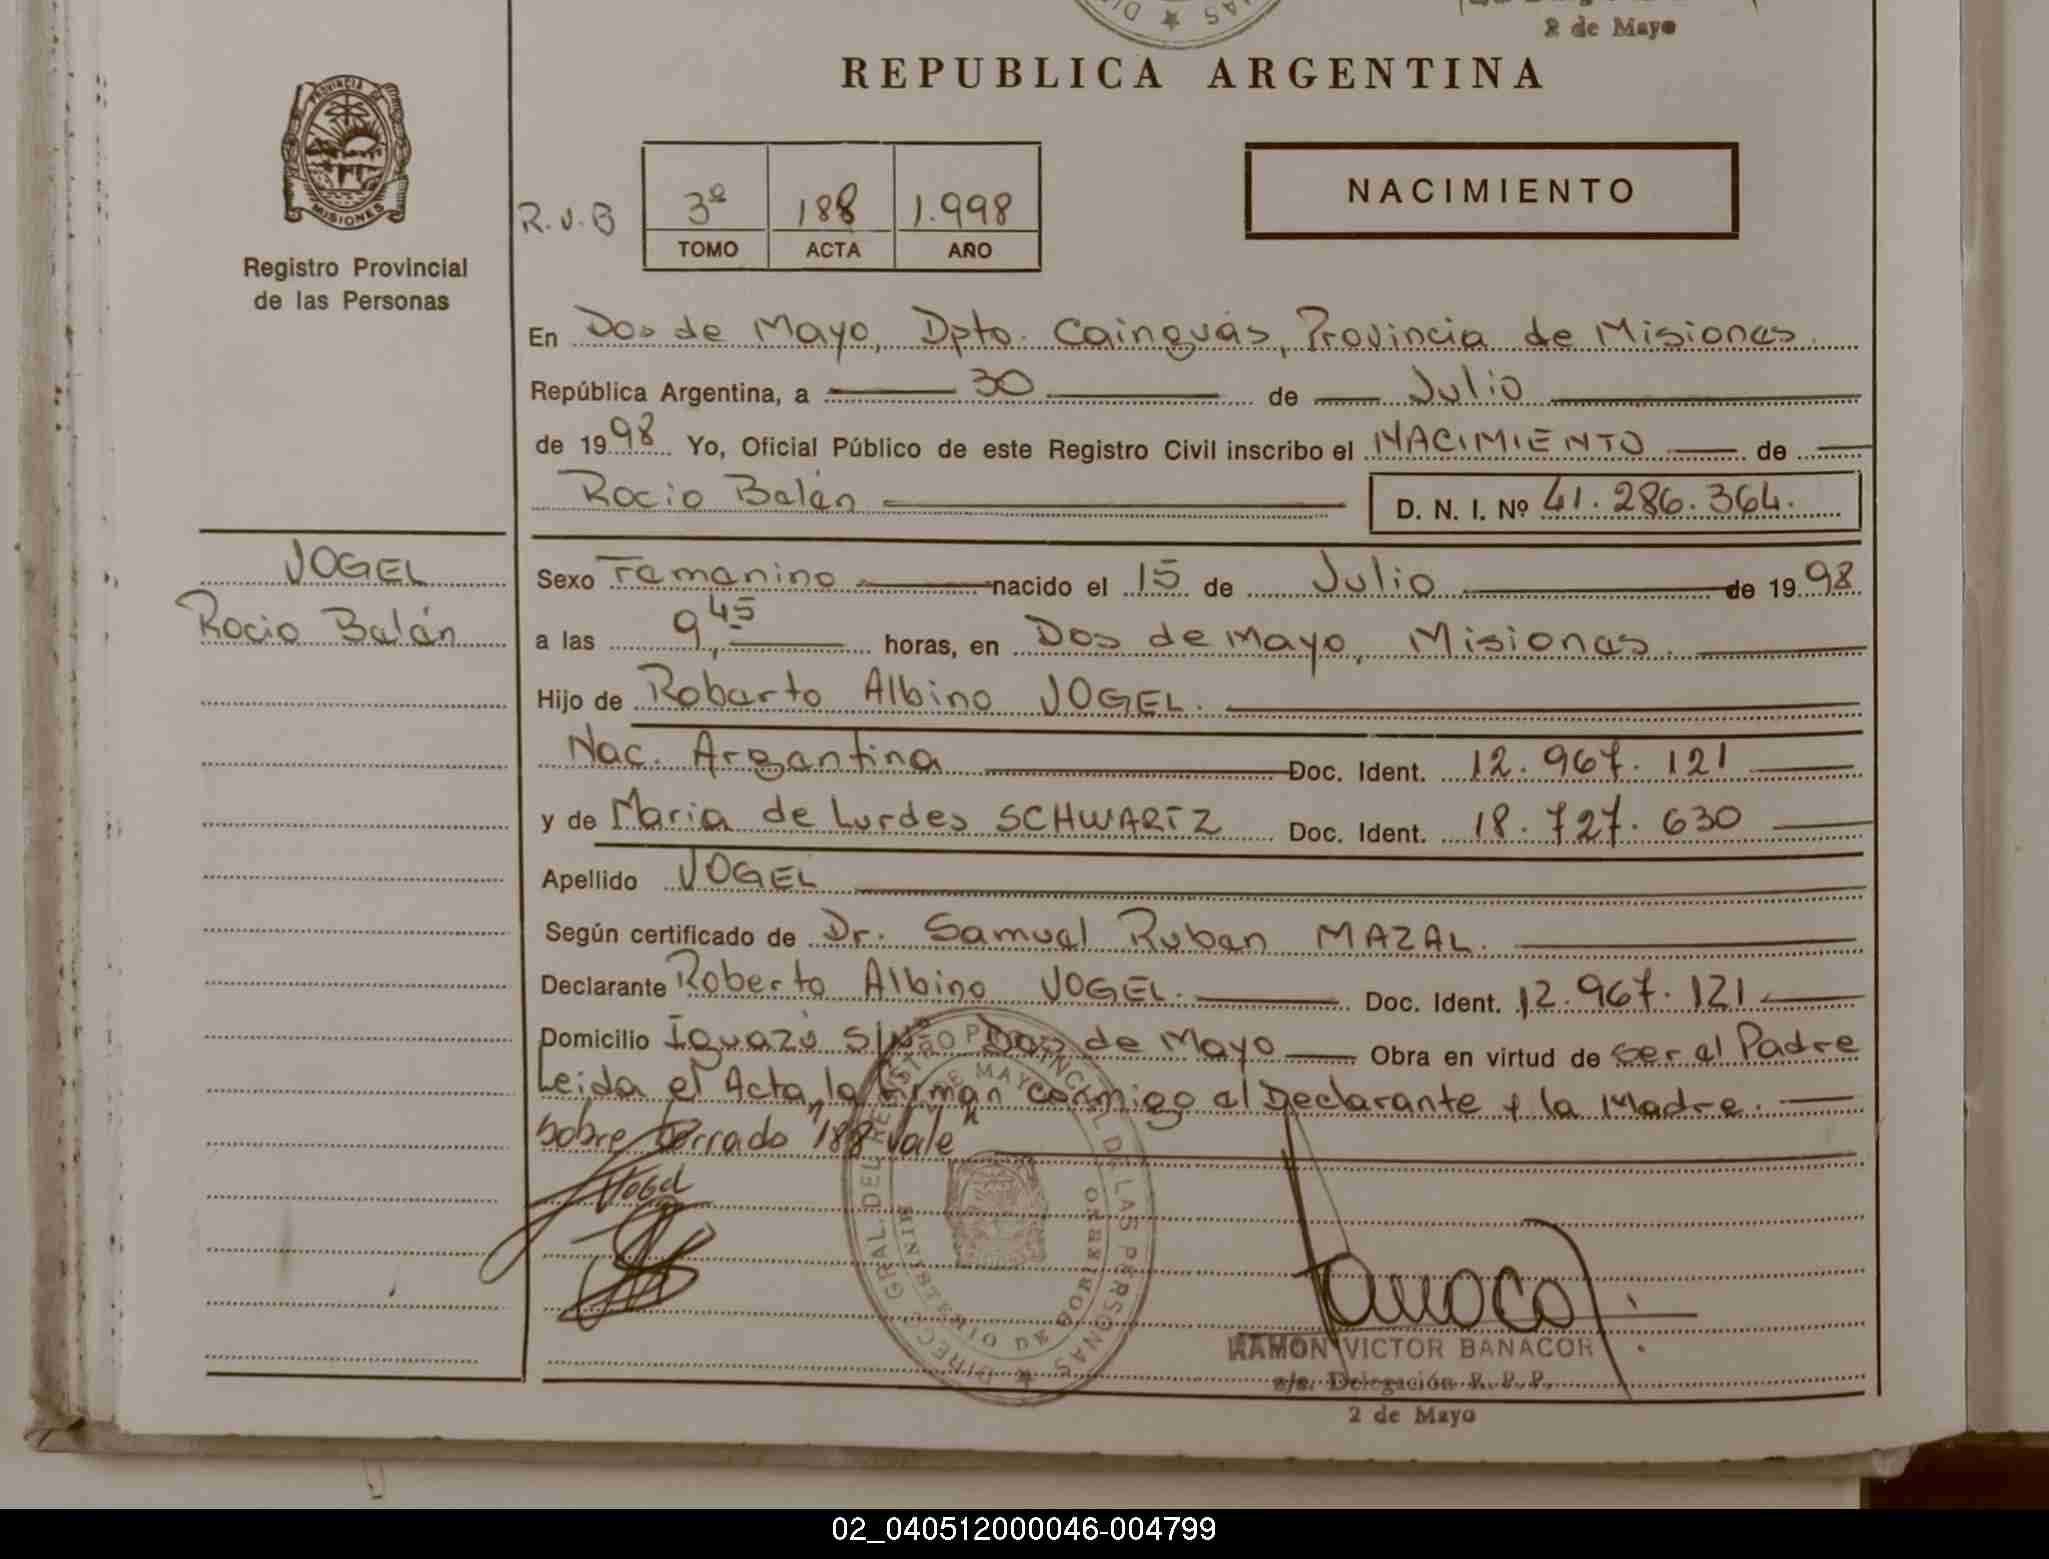 2 de Mayo
REPUBLICA ARGENTINA
PROVINCIA DE
MISIONES
Registro Provincial
de las Personas
R.V.B
3º 188 1.998
TOMO ACTA AÑO
NACIMIENTO
En Dos de Mayo, Dpto. Cainguás, Provincia de Misiones.
República Argentina, a 30 de Julio
de 1998 Yo, Oficial Público de este Registro Civil inscribo el NACIMIENTO de
Rocio Belén D. N. I. Nº 41.286.364.
VOGEL
Rocio Belén
Sexo Femenino nacido el 15 de Julio de 1998
a las 9,45 horas, en Dos de Mayo, Misiones.
Hijo de Roberto Albino VOGEL.
Nac. Argentina Doc. Ident. 12.967.121
y de Maria de Lurdes SCHWARTZ Doc. Ident. 18.727.630
Apellido VOGEL
Según certificado de Dr. Samuel Ruben MAZAL.
Declarante Roberto Albino VOGEL. Doc. Ident. 12.967.121
Domicilio Iguazú S/Nº Dos de Mayo Obra en virtud de ser el Padre
Leida el Acta, la firman conmigo el Declarante y la Madre.
Sobre borrado "188 Vale"
Vogel
DIRECC. GRAL. DEL REGISTRO PROVINCIAL DE LAS PERSONAS
MINISTERIO DE GOBIERNO
RAMON VICTOR BANACOR
a/c. Delegación R. P. P.
2 de Mayo
02_040512000046-004799